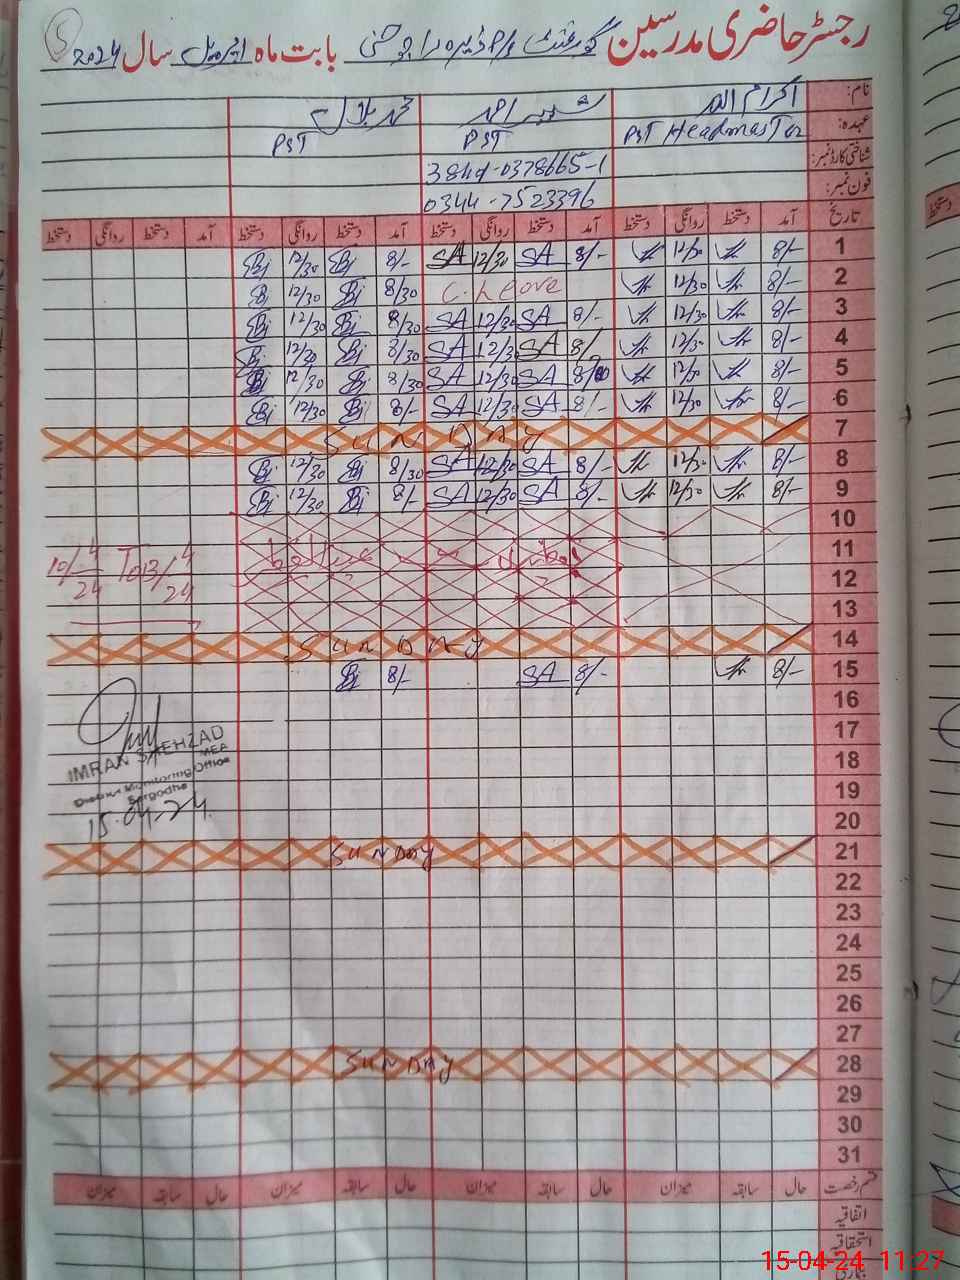 رجسٹر حاضری مدرسین گورنمنٹ بابت ماہ اپریل سال 2024
5
نام: اکرام اللہ شبیر احمد محمد بلال
عہدہ: PST Headmaster PST PST
شناختی کارڈ نمبر: 0378665-1
فون نمبر: 0344-7523396
تاریخ آمد دستخط روانگی دستخط آمد دستخط روانگی دستخط آمد دستخط روانگی دستخط آمد دستخط روانگی دستخط
1 8/- 12/30 8/- SA 12/30 SA 8/- 12/30
2 8/- 12/30 C. Leave 8/30 12/30
3 8/- 12/30 8/- SA 12/30 SA 8/30 12/30
4 8/- 12/30 8/ SA 12/30 SA 8/30 12/30
5 8/- 12/30 SA 12/30 SA 8/30 12/30
6 8/- 12/30 8/- SA 12/30 SA 8/- 12/30
7 SUNDAY
8 8/- 12/30 8/- SA 12/30 SA 8/30 12/30
9 8/- 12/30 8/- SA 12/30 SA 8/- 12/30
10
11 تعطیل عید الفطر 10/4/24 To 13/4/24
12
13
14 SUNDAY
15 8/- 8/- SA 8/-
16
17
18
19
20
IMRAN SHEHZAD
MEA
District Monitoring Office
Sargodha
15-04-24
21 SUNDAY
22
23
24
25
26
27
28 SUNDAY
29
30
31
قسم رخصت حال سابقہ میزان حال سابقہ میزان حال سابقہ میزان حال سابقہ میزان
اتفاقیہ
استحقاقیہ
15-04-24 11:27